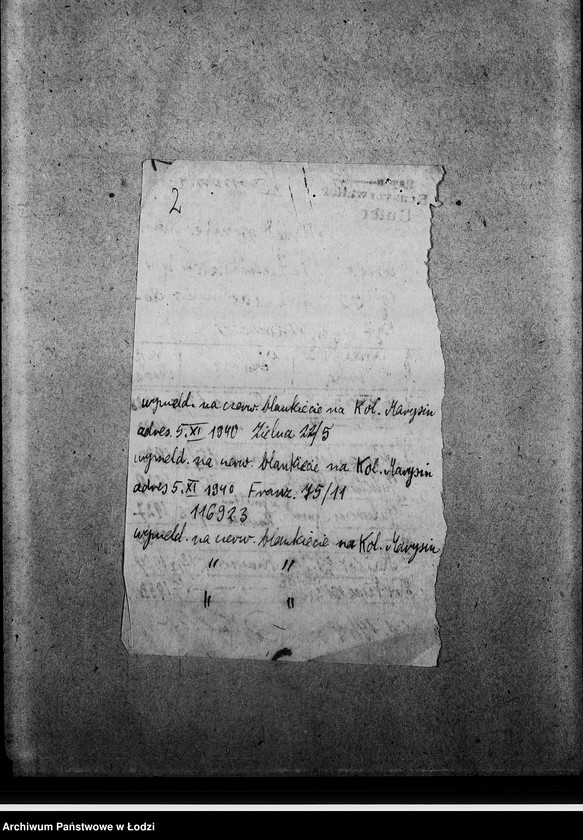 2
wymeld. na czerw. blankiecie na Kol. Marysin
adres. 5.XI 1940 Zielna 22/5
wymeld. na czerw. blankiecie na Kol. Marysin
adres 5.XI 1940 Franz. 75/11
116923
wymeld. na czerw. blankiecie na Kol. Marysin
" "
" "
Archiwum Państwowe w Łodzi